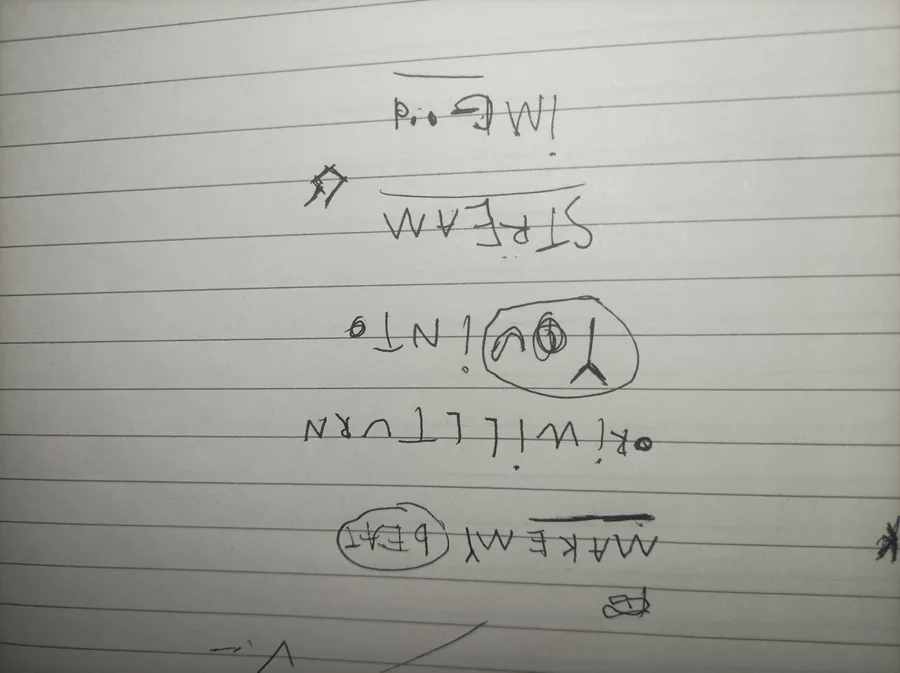 MAKE MY bEAT
ORiWiLLTURN
YOU iNTO
STREAM
iM